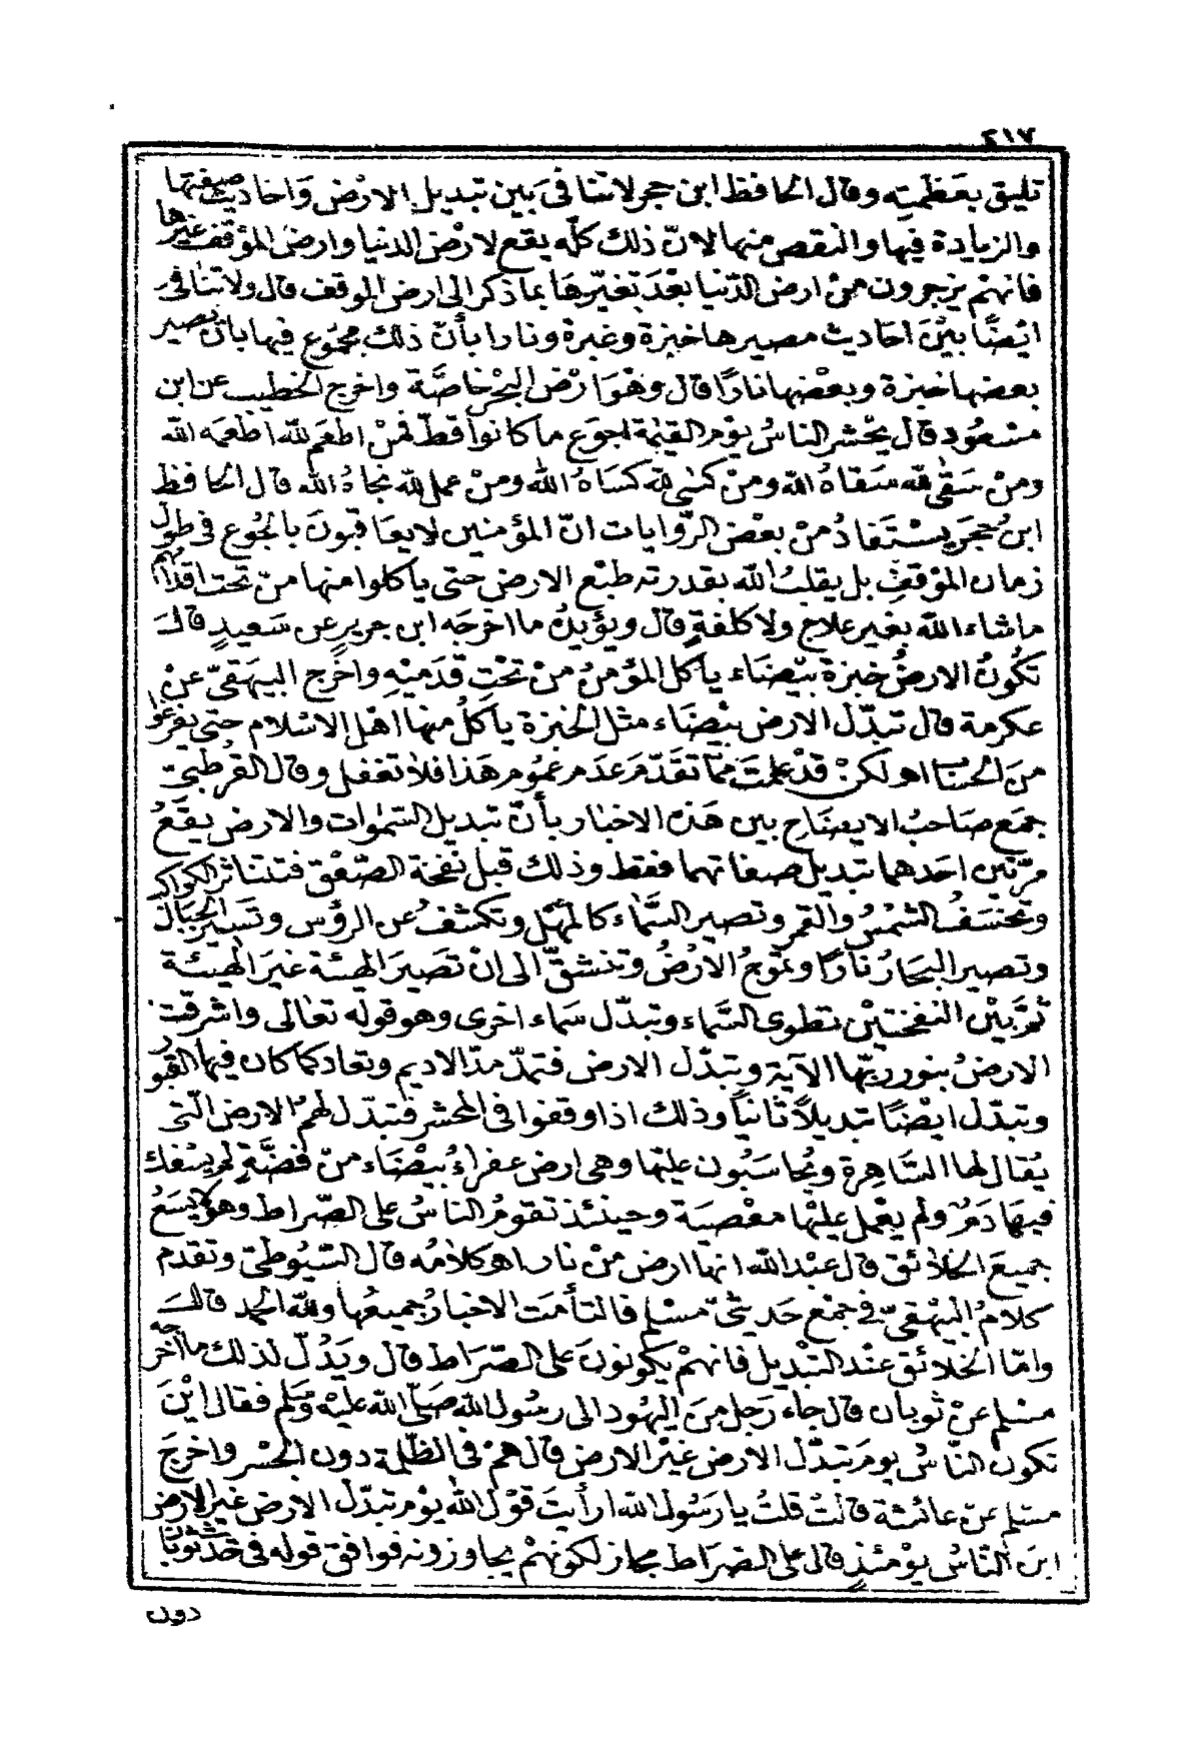 ٤١٧
تليق بعَظمتِه وقال الحافظ ابن حجر لا تنافىَ بين تبديل الارْض وَاحاديث صيفتها
والزيادة فيها والنقص منها لانّ ذلك كلّه يقع لارْض الدنيا وارضُ المؤقف غيرها
فانهمْ يزجرون منْ ارض الدّنيا بعْدَ تغيّرهَا بما ذكر الى ارض الموقف قال ولا تنافىَ
ايْضًا بيْنَ احَاديث مصيرها خبزة وغبرة ونارا بأنّ ذلك مجمُوع فيها بانْ تصير
بعضها خبزة وبعْضها نارًا قال وهْوَ ارْض البحْر خاصَّة واخرج الخطيب عن ابن
مسْعُود قال يحْشر الناسُ يوْم القيٰمة اجوَع ما كانوا قطّ فمنْ اطعَم لله اطعَمه الله
ومنْ سَقىٰ لله سَقاهُ الله ومنْ كسٰى لله كسَاهُ الله ومنْ عمل لله نجاهُ الله قال الحافظ
ابنُ حَجَر يسْتفادُ منْ بعْض الرّوايات انّ المؤمنين لا يعَاقبُونَ بالجُوع فى طول
زمان المؤقفِ بل يقلبُ الله بقدرته طبْع الارض حتى يأكلوا منها منْ تحت اقدامهم
ما شاء الله بغير علاجٍ ولا كلفةٍ قال ويؤيدُ ما اخرجَه ابن جريرٍ عن سَعيدٍ قال
تكُونُ الارضُ خبزة بيْضَاء يأكل المؤمنُ منْ تحتِ قدَميْهِ واخرج البيهَقىّ عنْ
عكرمة قال تبدّل الارض بيْضَاء مثل الخبزة يأكلُ منها اهْل الاسْلام حتى يفرغوا
منَ الحسَاب اهو لكنْ قدْ علمتَ ممّا تقدّمَ عدَم عمُوم هَذا فلا تغفل وقال القرطبىّ
جمَع صَاحبُ الايضَاح بين هَذه الاخبار بأنّ تبديل السّمٰوات والارض يقَعُ
مرّتين احَدهما تبديل صفاتهما فقط وذلك قبل نفخة الصّعْق فتتناثر الكواكب
وتخسَفُ الشمْسُ والقمر وتصير السَّماء كالمهْل وتكشفُ عن الرؤس وتسير الجبَال
وتصير البحَارُ نارًا وتموجُ الارْضُ وتنشقّ الى انْ تصيرَ الهيْئة غيرَ الهيْئة
ثمّ بيْن النفختيْن تطوى السَّماء وتبدّل سَماء اخرى وهو قوله تعَالى واشرقت
الارضُ بنور ربّها الآية وتبدّل الارض فتمدّ مدّ الاديم وتعاد كما كان فيها القبُور
وتبدّل ايْضًا تبديلًا ثانيًا وذلك اذا وقفوا فى المحْشر فتبدّل لهمُ الارض الّتى
يُقال لها السَّاهِرة ويُحاسَبُون عليْها وهى ارض عفراءُ بيْضَاء منْ فضَّةٍ لم يسْفك
فيهَا دَمٌ ولم يعْمل عليْها معْصِيَة وحينئذ تقومُ الناسُ على الصّراط وهو لا يسَعُ
جميعَ الخلائق قال عبْد الله انها ارض منْ نار اهو كلامُه قال السّيُوطىّ وتقدم
كلامُ البيْهقىّ فى جمْع حَديثىْ مسْلم فالتأمَت الاخبارُ جميعُها ولله الحمد قال
وامّا الخلائق عنْد التبْديل فانهمْ يكونونَ على الصّرَاط قال ويَدُلّ لذلك ما اخرجه
مسْلم عنْ ثوبان قال جاء رَجل منَ اليهُود الى رسُول الله صَلّى الله عليْه وسَلم فقال ايْنَ
تكونُ النّاسُ يومَ تبدّل الارْض غيْر الارض قال همْ فى الظّلمة دون الجسْر واخرجَ
مسْلم عنْ عائشة قالتْ قلتُ يا رَسُول الله ارأيتَ قوْل الله يوْم تبدّل الارض غيْر الارض
اينَ النّاسُ يوْمئذٍ قال على الصّرَاط مجاز لكونهمْ يجاوزونه فوافق قوله فى حَديث ثوبَان
دون